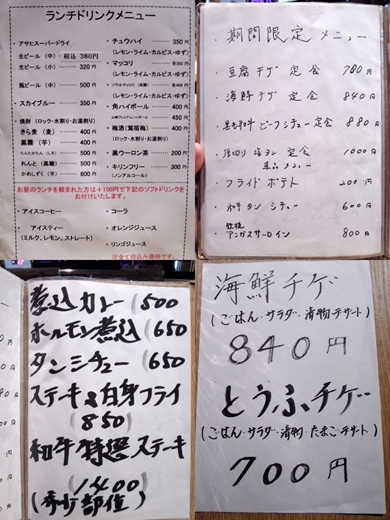 ランチドリンクメニュー
・アサヒスーパードライ
生ビール (中) ・税込 380円
生ビール (小) ・・・・ 320 円
瓶ビール (中) ・・・・ 500 円
・スカイブルー ・・・・ 350 円
・焼酎 (ロック・水割り・お湯割り)
きら麦 (麦) ・・・・ 400 円
黒霧 (芋) ・・・・ 400 円
れんと (黒糖) ・・・・ 500 円
かめしずく (芋) ・・・・ 600 円
・チュウハイ ・・・・ 350 円
(レモン・ライム・カルピス・ゆず)
・マッコリ
(レモン・ライム・カルピス・ゆず)
・角ハイボール ・・・・ 400 円
・梅酒 (鶯宿梅) ・・・・ 400 円
(ロック・水割り・お湯割り)
・黒ウーロン茶 ・・・・ 200 円
・キリンフリー ・・・・ 300 円
(ノンアルコール)
お昼のランチを頼まれた方は+100円で下記のソフトドリンクを
お付けいたします。
・アイスコーヒー
・アイスティー
(ミルク、レモン、ストレート)
・コーラ
・オレンジジュース
・リンゴジュース
※全て税込み価格です。
期間限定 メニュー
・豆腐チゲ 定食 780円
・海鮮チゲ 定食 840円
・黒毛和牛 ビーフシチュー 定食 880円
・厚切り 塩タン 定食 1000円
単品メニュー
・フライドポテト 200円
・和牛タンシチュー 600円
・鉄板
アンガスサーロイン 800円
煮込カレー (500
ホルモン煮込 (650
タンシチュー (650
ステキ&白身フライ
(850)
和牛特選ステーキ
(1400)
(希少部位)
海鮮チゲ
(ごはん・サラダ・漬物・デザート)
840円
とうふチゲ
(ごはん・サラダ・漬物・たまご・デザート)
700円